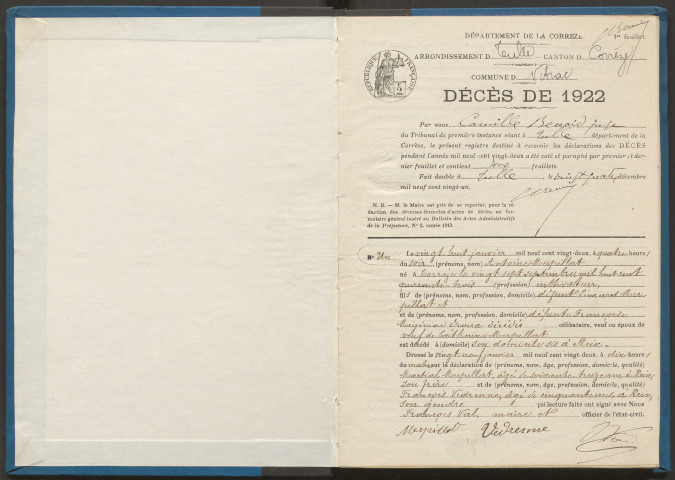 DÉPARTEMENT DE LA CORRÈZE.
1er feuillet.
ARRONDISSEMENT D Tulle CANTON D Corrèze
RÉPUBLIQUE FRANÇAISE
2
COMMUNE D Vitrac
DÉCÈS DE 1922
Par nous Camille Benoid juge
du Tribunal de première instance séant à Tulle département de la
Corrèze, le présent registre destiné à recevoir les déclarations des DÉCÈS
pendant l'année mil neuf cent vingt-deux a été coté et paraphé par premier et der-
nier feuillet et contient feuillets.
Fait double à Tulle le vingt quatre décembre
mil neuf cent vingt-un.
N. B. — M. le Maire est prié de se reporter, pour la ré-
daction des diverses formules d'actes de décès, au for-
mulaire général inséré au Bulletin des Actes Administratifs
de la Préfecture, No 2, année 1913.
No Un
Le vingt huit janvier mil neuf cent vingt-deux, à quatre heures
du soir (prénoms, nom) Antoine Meyrillat
né à Corrèze le vingt sept septembre mil huit cent
quarante-trois (profession) cultivateur,
fils de (prénoms, nom, profession, domicile) défunt Léonard Mey-
rillat et
et de (prénoms, nom, profession, domicile) défunte Françoise
décédés célibataire, veuf ou époux de
veuf de Catherine Meyrillat
est décédé à (domicile) son domicile sis à
Dressé le vingt neuf janvier mil neuf cent vingt-deux, à dix heures
du matin sur la déclaration de (prénoms, nom, âge, profession, domicile, qualité)
Martial Meyrillat, âgé de soixante treize ans à
son frère et de (prénoms, nom, âge, profession, domicile, qualité)
François Vedrenne, âgé de cinquante ans, à
son gendre qui lecture faite ont signé avec Nous
François Val, maire et officier de l'état-civil.
Meyrillat Vedrenne